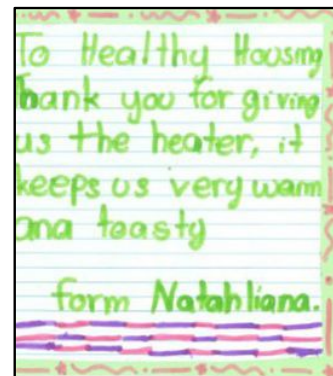 To Healthy Housing
Thank you for giving
us the heater, it
keeps us very warm
and toasty
form Natahliana.